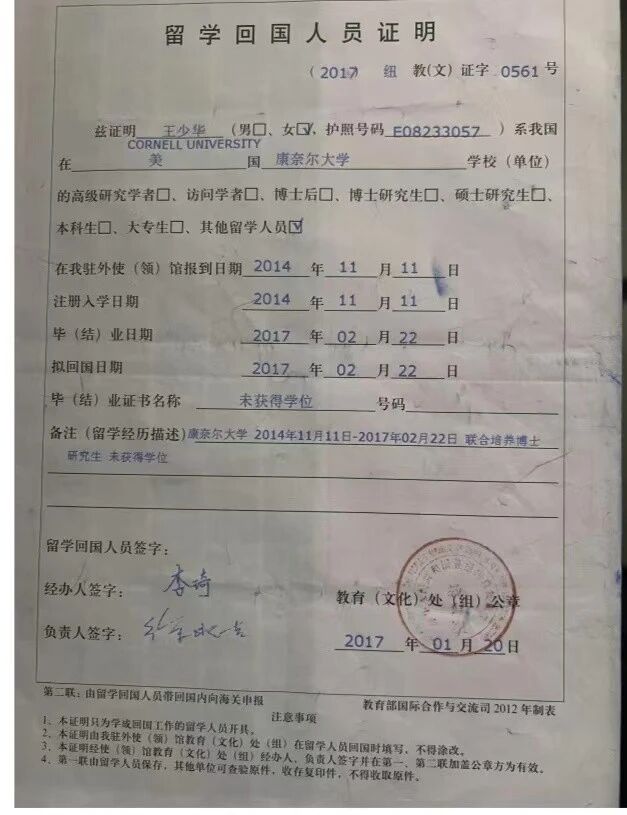 留学回国人员证明
(2017 纽 教(文)证字 0561 号
兹证明 王少华 (男□、女☑、护照号码 E08233057 )系我国
CORNELL UNIVERSITY
在 美 国 康奈尔大学 学校(单位)
的高级研究学者□、访问学者□、博士后□、博士研究生□、硕士研究生□、
本科生□、大专生□、其他留学人员☑
在我驻外使(领)馆报到日期 2014 年 11 月 11 日
注册入学日期 2014 年 11 月 11 日
毕(结)业日期 2017 年 02 月 22 日
拟回国日期 2017 年 02 月 22 日
毕(结)业证书名称 未获得学位 号码
备注(留学经历描述) 康奈尔大学 2014年11月11日-2017年02月22日 联合培养博士
研究生 未获得学位
留学回国人员签字:
经办人签字: 李琦
负责人签字:
教育(文化)处(组)公章
2017 年 01 月 20 日
第二联:由留学回国人员带回国内向海关申报
教育部国际合作与交流司 2012 年制表
注意事项
1、本证明只为学成回国工作的留学人员开具。
2、本证明由我驻外使(领)馆教育(文化)处(组)在留学人员回国时填写,不得涂改。
3、本证明经使(领)馆教育(文化)处(组)经办人、负责人签字并在第一、第二联加盖公章方为有效。
4、第一联由留学人员保存,其他单位可查验原件,收存复印件,不得收取原件。